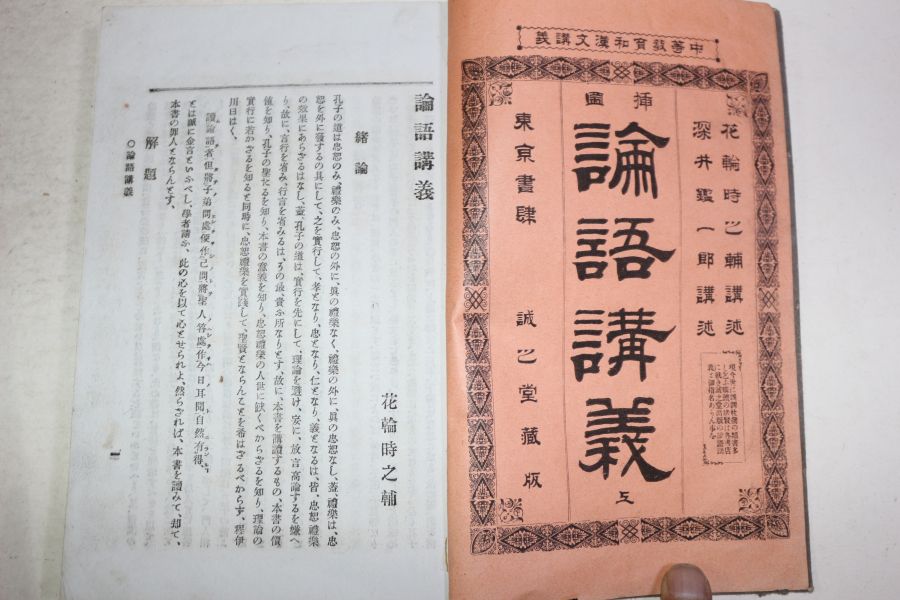 中等敎育和漢文講義
花輪時之輔講述
深井鑑一郎講述
挿圖
論語講義
上
東京書肆 誠之堂藏版
論語講義
花輪時之輔
緒論
孔子の道は忠恕のみ、禮樂のみ、忠恕の外に、眞の禮樂なく、禮樂の外に、眞の忠恕なし、蓋、禮樂は、忠
恕を外に發するの具にして、之を實行して、孝となり、忠となり、仁となり、義となるは、皆、忠恕禮樂
の效果にあらざるはなし、蓋、孔子の道は、實行を先にして、理論を避け、妄に、放言高論するを嫌へ
り、故に、言行を省み、行言を省みるは、その最貴ふ所なりとす、故に、本書を講讀するもの、本書の價
値を知り、孔子の聖たるを知り、本書の意義を知り、忠恕禮樂の人世に缺くべからざるを知り、理論の
實行に若かざるを知ると同時に、忠恕禮樂を實踐して、聖賢とならんことを希はざるべからず、程伊
川曰はく、
讀論語者但將子弟問處便作己問將聖人答處作今日耳聞自然有得
とは誠に金言といふべし、學者請ふ、此の心を以て心とせられよ、然らざれば、本書を讀みて、却て、
本書の罪人とならんとす、
解題
〇論語講義
一